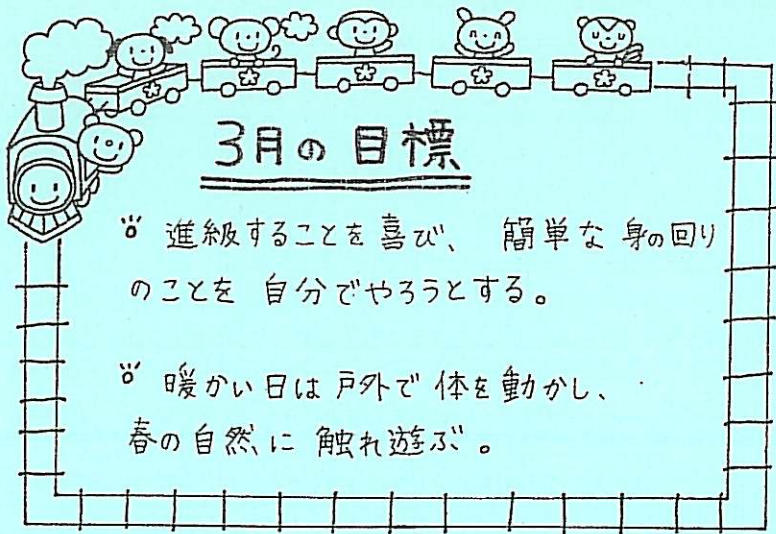 3月の目標
進級することを喜び、簡単な身の回り
のことを自分でやろうとする。
暖かい日は戸外で体を動かし、
春の自然に触れ遊ぶ。